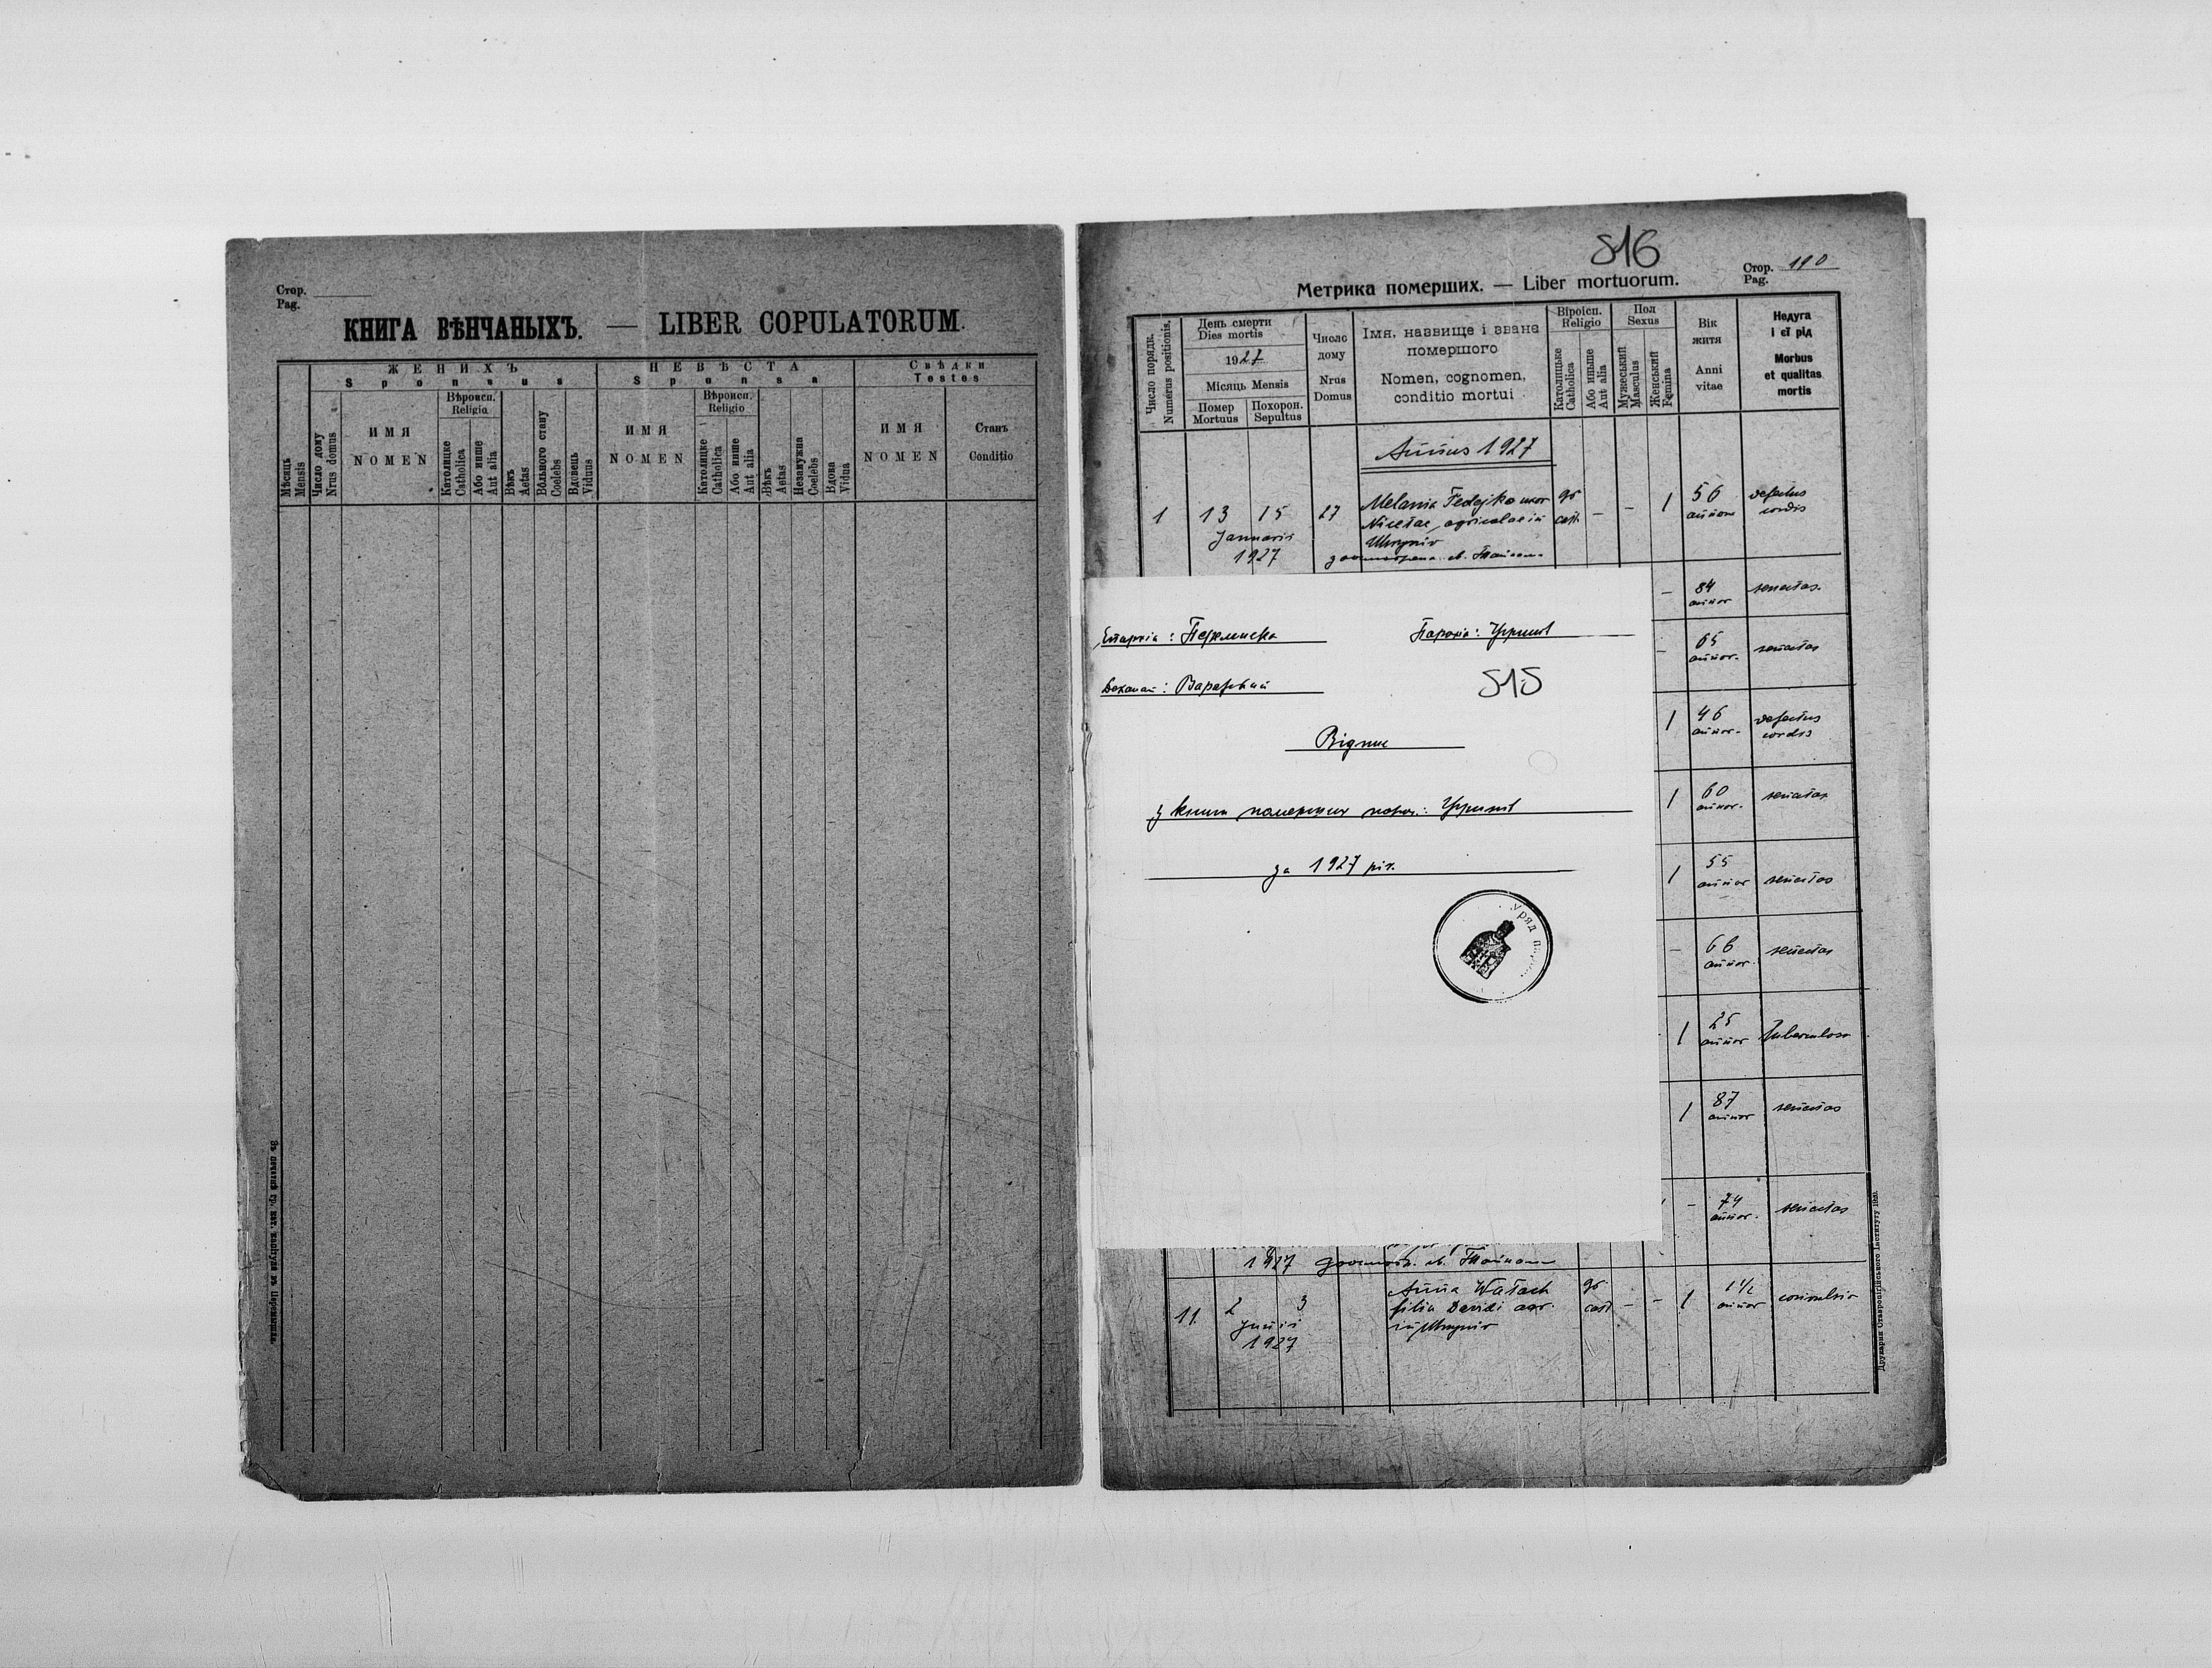 Стор.
Pag.
КНИГА ВѢНЧАНЫХЪ. — LIBER COPULATORUM.
Мѣсяць
Mensis
Число дому
Nrus domus
ЖЕНИХЪ
Sponsus
ИМЯ
NOMEN
Вѣроисп.
Religio
Католицке
Catholica
Або инше
Aut alia
Вѣкъ
Aetas
Вôльного стану
Coelebs
Вдовець
Viduus
НЕВѢСТА
Sponsa
ИМЯ
NOMEN
Вѣроисп.
Religio
Католицке
Catholica
Або инше
Aut alia
Вѣкъ
Aetas
Незамужна
Coelebs
Вдова
Vidua
Свѣдки
Testes
ИМЯ
NOMEN
Станъ
Conditio
516
Стор. 110
Pag.
Метрика померших. — Liber mortuorum.
Число порядк.
Numerus positionis.
День смерти
Dies mortis
1927
Місяць Mensis
Помер
Mortuus
Похорон.
Sepultus
Число
дому
Nrus
Domus
Імя,назвище і званє
помершого
Nomen, cognomen,
conditio mortui
Віроісп.
Religio
Католицьке
Catholica
Або иньше
Aut alia
Пол
Sexus
Мужеський
Masculus
Женський
Femina
Вік
житя
Anni
vitae
Недуга
і єї рід
Morbus
et qualitas
mortis
Annus 1927
1 13 15 27 Melania Fedejko uxor gr. — — 1 56 defectus
Januarii Nicetae, agricolae in cath. annor cordis
1927 Uhryniv
— 84 senectus.
annor
— 65 senectus
annor.
1 46 defectus
annor. cordis
1 60 senectus
annor.
1 55 senectus
annor
— 66 senectus
annor.
1 25 Tuberculosa
annor
1 87 senectus
annor
— 74 senectus
annor.
Епархія: Перемиска Парохія: Угринів
Деканат: Варяжский
515
Відпис
з книги померших парох.: Угринів
за 1927 рік.
Уряд
1927
11. 2 3 Anna Watach gr. — — 1 1 1/2 convulsio
Junii filia Davidi agr. cath annor
1927 in Uhryniv
Друкарня Ставропігійського Інститут